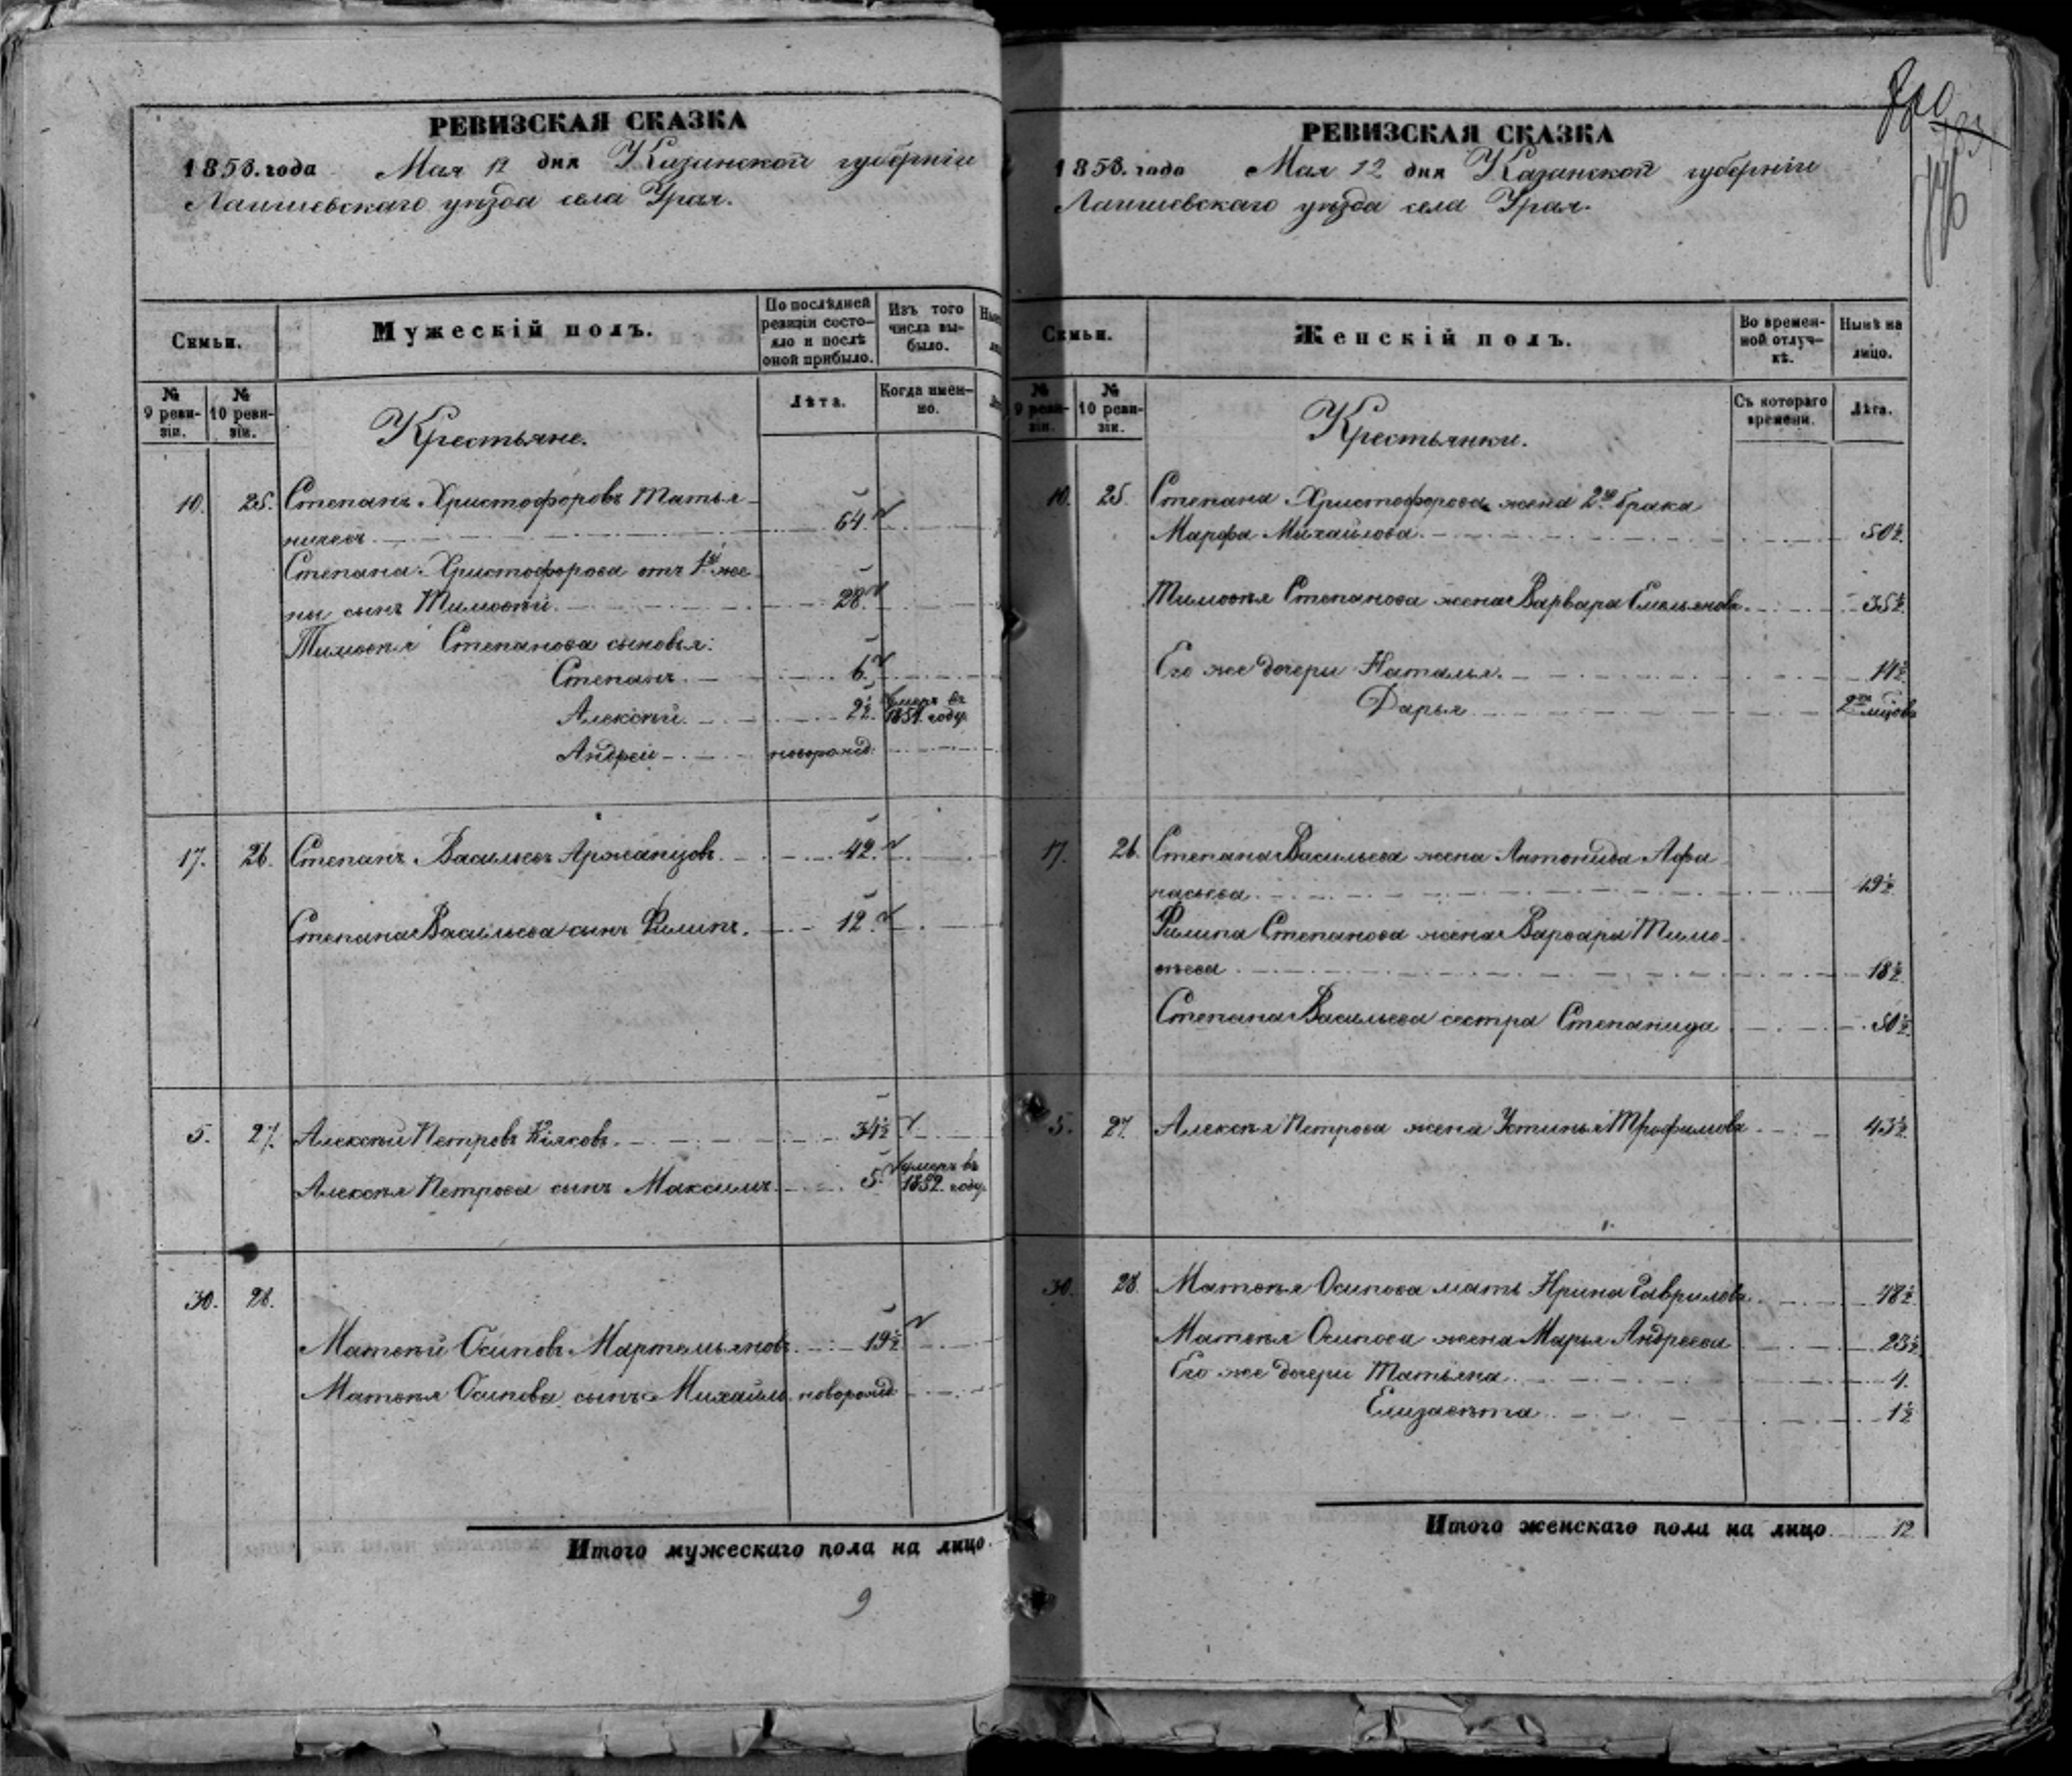 РЕВИЗСКАЯ СКАЗКА
1858. года Мая 12 дня Казанской губерніи
Лаишевскаго уѣзда села Урая.
Семьи.
Мужескій полъ.
По послѣдней ревизіи состо-
яло и послѣ
оной прибыло.
Изъ того
числа вы-
было.
№
9 реви-
зіи.
№
10 реви-
зіи.
Лѣта.
Когда имен-
но.
Крестьяне.
10. 25. Степанъ Христофоровъ Матья-
64.
Степана Христофорова отъ 1й же-
ны сынъ Тимоѳей. 28.
Тимоѳея Степанова сыновья:
Степанъ. 6.
Алексѣй. 2½. умеръ въ 1851. году
Андрей новорожд.
17. 26. Степанъ Васильевъ Аржанцовъ. 42.
Степана Васильева сынъ Филипъ. 12.
5. 27. Алексѣй Петровъ 34½
Алексѣя Петрова сынъ Максимъ. 5. умеръ въ 1852. году.
30. 28.
Матвѣй Осиповъ Мартемьяновъ. 19½
Матвѣя Осипова сынъ Михайло новорожд
Итого мужескаго пола на лицо.
9
РЕВИЗСКАЯ СКАЗКА
1858. года Мая 12 дня Казанской губерніи
Лаишевскаго уѣзда села Урая.
Семьи.
Женскій полъ.
Во времен-
ной отлуч-
кѣ.
Нынѣ на
лицо.
№
9 реви-
зіи.
№
10 реви-
зіи.
Съ котораго
времени.
Лѣта.
Крестьянки.
10. 25. Степана Христофорова жена 2го брака
Марфа Михайлова. 50½.
Тимоѳея Степанова жена Варвара Емельянова. 35½
Его же дочери Наталья. 14½
Дарья 2хъ мѣсяцовъ
17. 26. Степана Васильева жена Антонида Афа-
насьева. 49½
Филипа Степанова жена Варвара Тимо-
ѳеева 18½
Степана Васильева сестра Степанида 50½
5. 27. Алексѣя Петрова жена Устинья Трофимова 43½
30. 28. Матвѣя Осипова мать Ирина Гаврилова 48½
Матвѣя Осипова жена Марья Андреева 23½
Его же дочери Татьяна 4.
Елизавета 1½
Итого женскаго пола на лицо 12